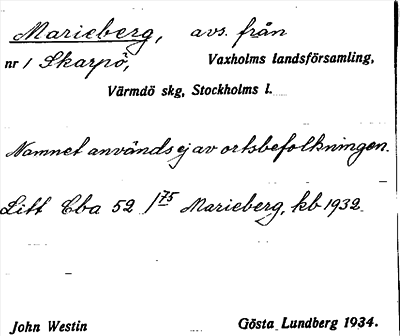 Marieberg, avs. från
nr 1 Skarpö, Vaxholms landsförsamling,
Värmdö skg, Stockholms l.
Namnet används ej av ortsbefolkningen.
Litt Cba 52 1/75 Marieberg, kb 1932.
John Westin Gösta Lundberg 1934.